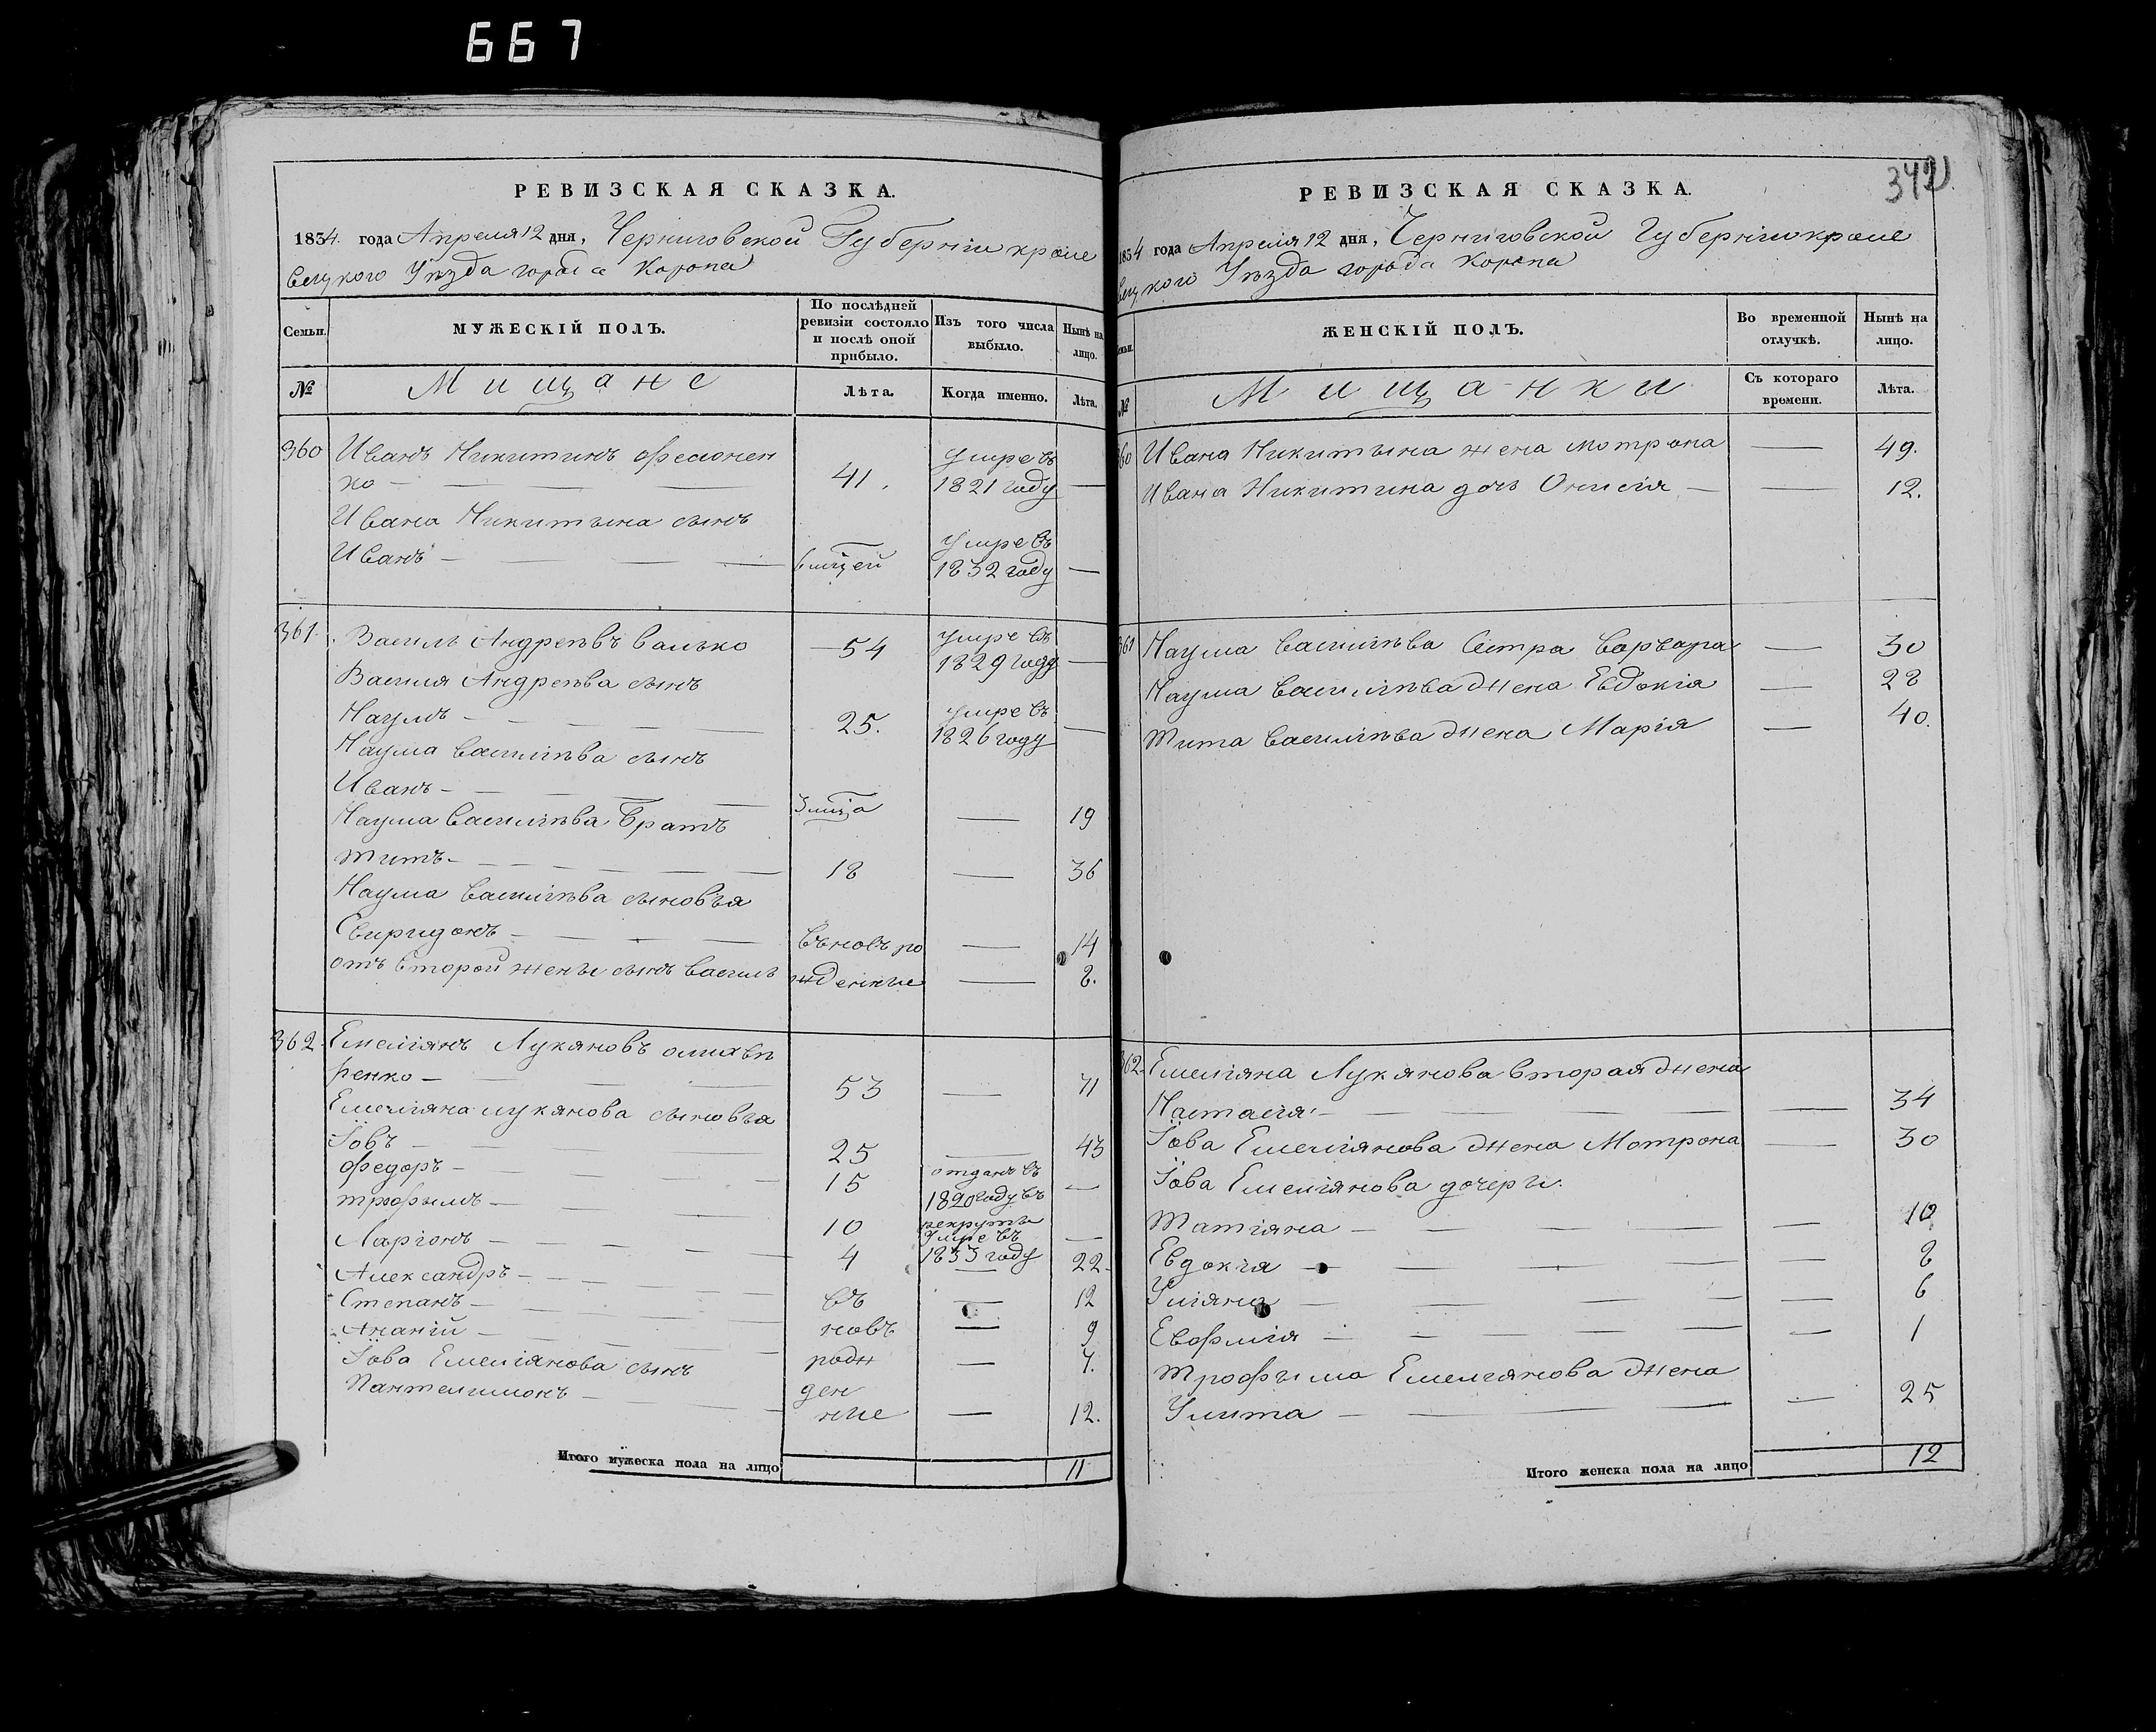 667
РЕВИЗСКАЯ СКАЗКА.
1834. года Апреля 12 дня, Черниговской Губерніи кроле
вецкого Уѣзда города Коропа
Семьи.
МУЖЕСКІЙ ПОЛЪ.
По послѣдней ревизіи состояло и послѣ оной прибыло.
Изъ того числа выбыло.
Нынѣ на лицо.
№
Мищане
Лѣта.
Когда именно.
Лѣта.
360 Иванъ Никитинъ
ко — 41. умре въ 1821 году —
Ивана Никитына сынъ
Иванъ — умре въ 1832 году —
361. Василь Андреѣвъ Валько — 54 умре въ 1829 году —
Василя Андреѣва сынъ
Наумъ — 25. умре въ 1826 году —
Наума Василіѣва сынъ
Иванъ — — 19
Наума Василіѣва Братъ
Титъ — 18 — 36
Наума Василіѣва сыновъя
Свиридонъ — въновъ ро — 14
отъ второй жены сынъ Василь жденные — 8.
362. Емеліянъ Лукяновъ
ренко — 53 — 71
Емеліяна лукянова сыновъя
Іовъ — 25 — 43
Федоръ — 15 отданъ въ 1820 году въ рекруты —
трофымъ — 10 Умре въ 1833 году —
Ларіонъ — 4 — 22
Александръ — въ — 12
Степанъ — новъ — 9
Ананій — рож — 4.
Іова Емеліянова сынъ ден
Пантелимонъ — ные — 12.
Итого мужеска пола на лицо 11
342
РЕВИЗСКАЯ СКАЗКА.
1834 года Апреля 12 дня, Черниговской Губерніи кроле
вецкого Уѣзда города Коропа
ЖЕНСКІЙ ПОЛЪ.
Во временной отлучкѣ.
Нынѣ на лицо.
№
Мищанки
Съ котораго времени.
Лѣта.
360 Ивана Никитына жена мотрона — 49.
Ивана Никитина дочь Онисія — — 12.
361 Наума Василіѣва Сестра Варвара — 30
Наума Василіѣва жена Евдокія — 28
Тита Василіѣва жена Марія — 40.
362. Емеліяна Лукянова вторая жена
Настасія — — 34
Іова Емеліянова жена Мотрона — 30
Іова Емеліянова дочери.
Татіяна — — 10
Евдокія — — 8
Уліяна — — 6
Евфимія — — 1
Трофыма Емеліянова жена
Улита — — 25
Итого женска пола на лицо 12